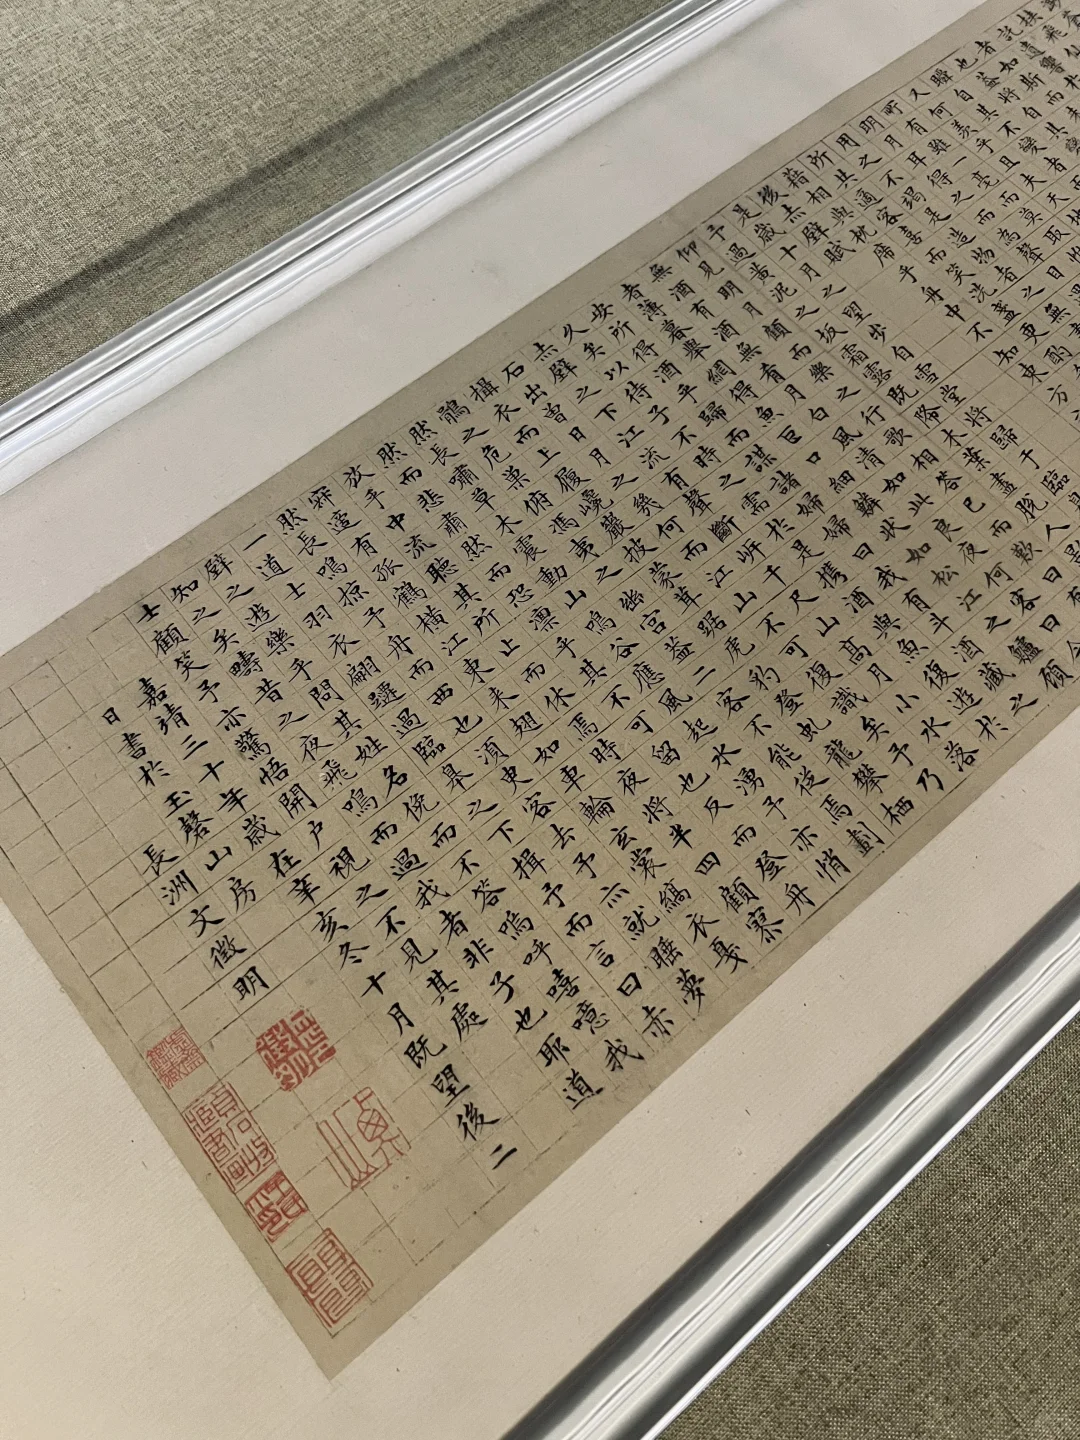 者如斯而
也蓋將自其
瞬自其不變者而
又何羨乎且夫天
所有雖一毫而莫取
明月耳得之而為聲目
用之不竭是造物者之無
所共適客喜而笑洗盞更酌
藉相與枕席乎舟中不知東方
後赤壁賦
是歲十月之望步自雪堂將歸于臨
予過黃泥之坂霜露既降木葉盡脫人
仰見明月顧而樂之行歌相答已而歎曰有
無酒有酒無肴月白風清如此良夜何客曰今
者薄暮舉網得魚巨口細鱗狀如松江之鱸顧
安所得酒乎歸而謀諸婦婦曰我有斗酒藏之
久矣以待子不時之需於是携酒與魚復遊於
赤壁之下江流有聲斷岸千尺山高月小水落
石出曾日月之幾何而江山不可復識矣予乃
攝衣而上履巉巖披蒙茸踞虎豹登虬龍攀栖
鶻之危巢俯馮夷之幽宮蓋二客不能從焉劃
然長嘯草木震動山鳴谷應風起水湧予亦悄
然而悲肅然而恐凜乎其不可留也反而登舟
放乎中流聽其所止而休焉時夜將半四顧寂
寥適有孤鶴橫江東來翅如車輪玄裳縞衣戛
然長鳴掠予舟而西也須臾客去予亦就睡夢
一道士羽衣翩躚過臨皋之下揖予而言曰赤
壁之遊樂乎問其姓名俛而不答嗚呼嘻噫我
知之矣疇昔之夜飛鳴而過我者非子也耶道
士顧笑予亦驚悟開户視之不見其處
嘉靖三十年歲在辛亥冬十月既望後二
日書於玉磬山房
長洲文徵明